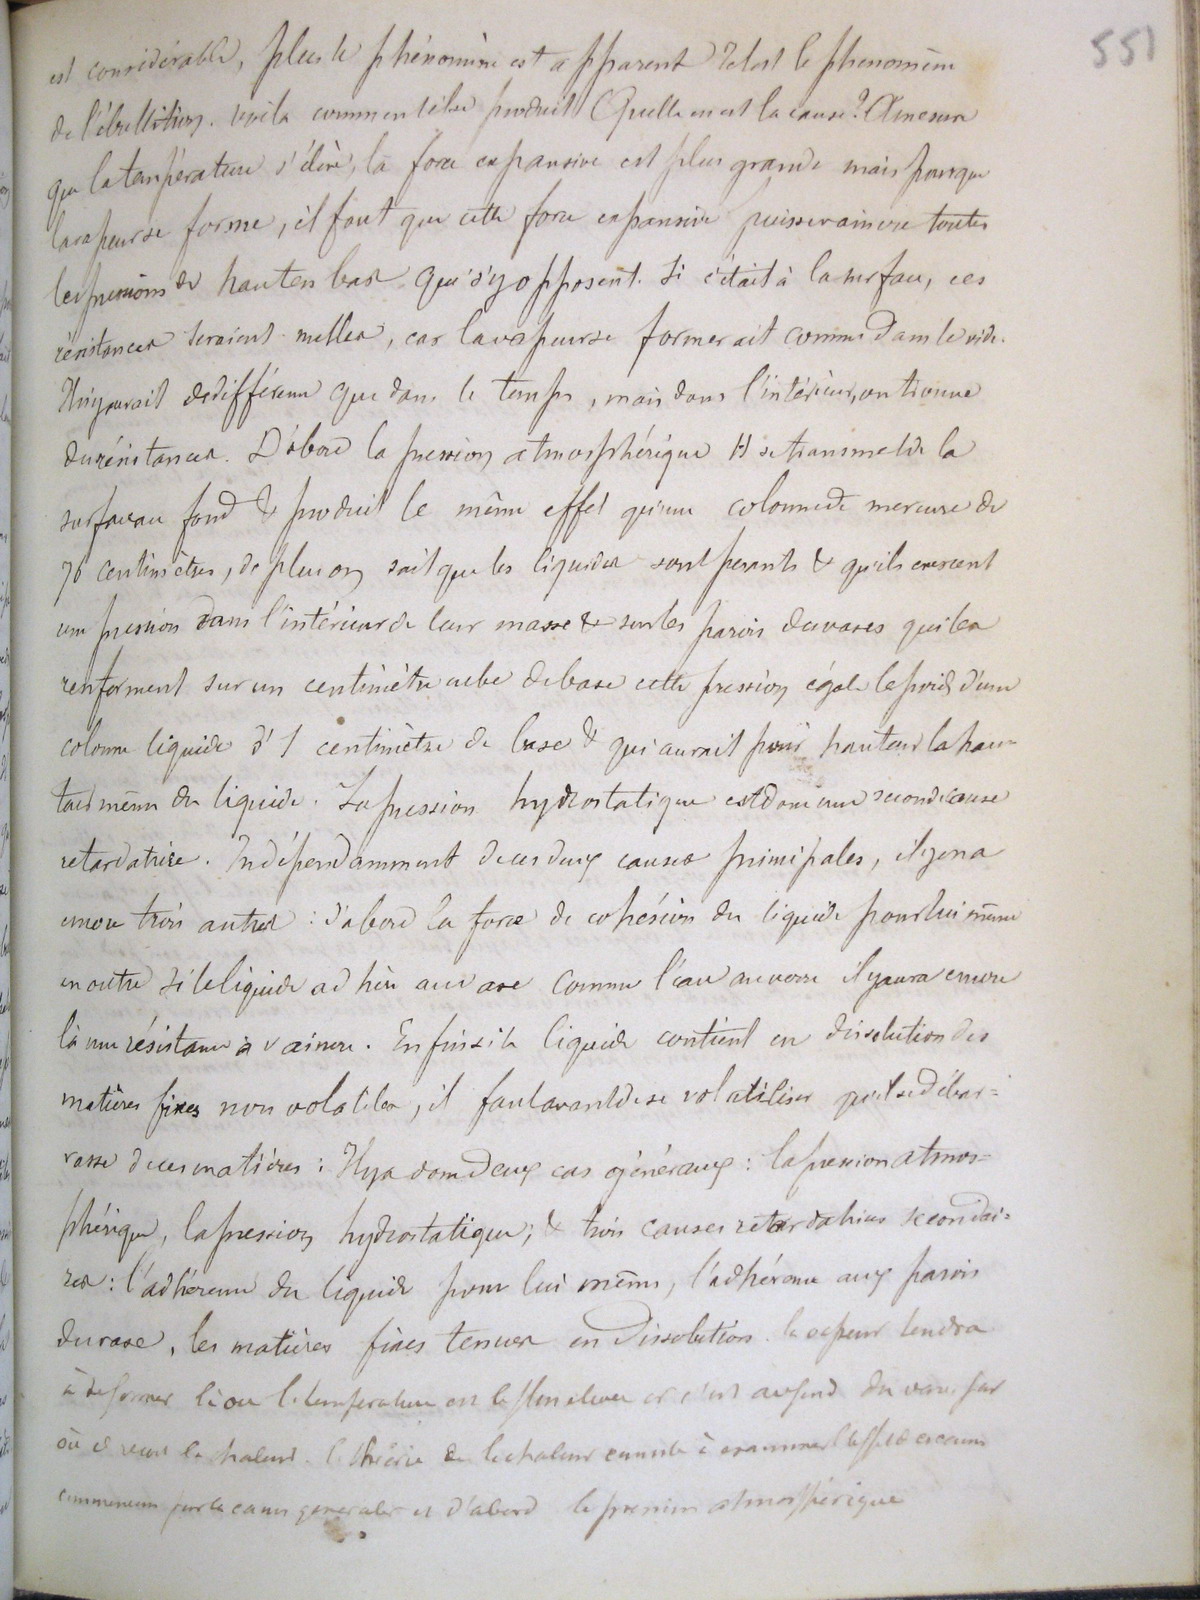 551
est considérable, plus le phénomène est apparent Tel est le phénomène
de l'ébullition. Voila comment elle se produit Quelle en est la cause? A mesure
que la température s'élève, la force expansive est plus grande mais pour que
la vapeur se forme, il faut que cette force expansive puisse vaincre toutes
les pressions de haut en bas qui s'y opposent. Si c'était à la surface, ces
résistances seraient nulles, car la vapeur se formerait comme dans le vide.
Il n'y aurait de différence que dans le temps, mais dans l'intérieur, on trouve
des résistances. D'abord la pression atmosphérique H se transmet de la
surface au fond & produit le même effet qu'une colonne de mercure de
76 centimètres, de plus on sait que les liquides sont pesants & qu'ils exercent
une pression dans l'intérieur de leur masse & sur les parois des vases qui les
renferment sur un centimètre cube de base cette pression égale le poids d'une
colonne liquide d'1 centimètre de base & qui aurait pour hauteur la hau-
teur même du liquide. La pression hydrostatique est donc une seconde cause
retardatrice. Indépendamment de ces deux causes principales, il y en a
encore trois autres : d'abord la force de cohésion du liquide pour lui même
en outre si le liquide adhère au vase comme l'eau au verre il y aura encore
là une résistance à vaincre. Enfin si le liquide contient en dissolution des
matières fixes non volatiles, il faut avant de se volatiliser qu'il se débar=
rasse de ces matières : Il y a donc deux cas généraux : la pression atmos=
phérique, la pression hydrostatique; & trois causes retardatrices secondai=
res : l'adhérence du liquide pour lui même, l'adhérence aux parois
du vase, les matières fixes tenues en dissolution. la vapeur tendra
à se former là ou la température est la plus élevée or c'est au fond du vase par
où il reçoit la chaleur. la théorie de la chaleur consiste à examiner l'effet de chacune
commençons par les causes generales et d'abord la pression atmosphérique